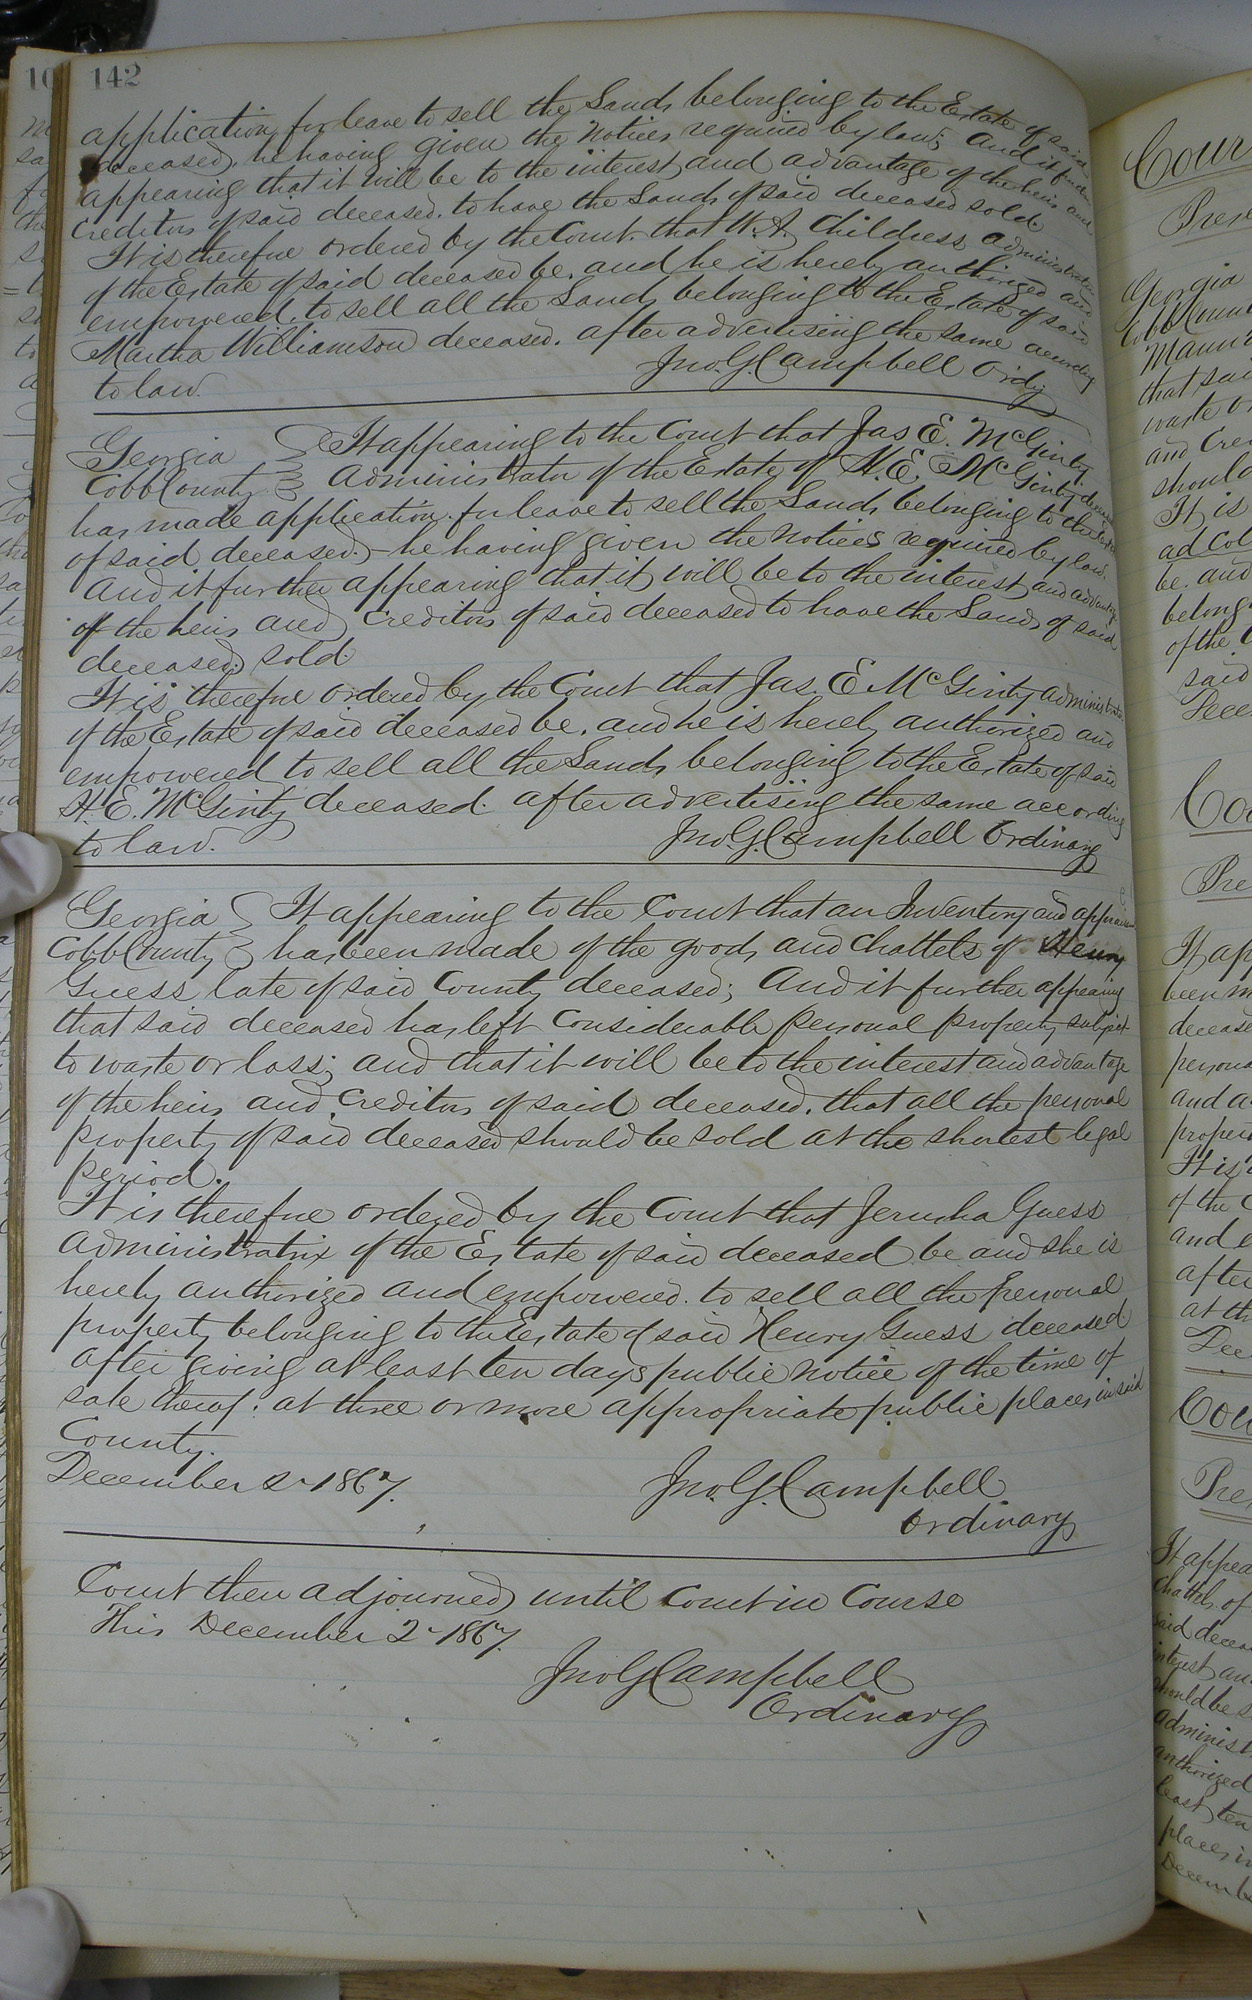 142
application for leave to sell the Lands belonging to the Estate of said
deceased, he having given the Notices required by law; And it further
appearing that it will be to the interest and advantage of the heirs and
Creditors of said deceased, to have the Lands of said deceased sold.
It is therefore ordered by the Court that W. A. Childress administrator
of the Estate of said deceased be, and he is hereby authorized and
empowered to sell all the Lands belonging to the Estate of said
Martha Williamson deceased. after advertising the same according
to law. Jno. G. Campbell Ordy
Georgia It appearing to the Court that Jas E. McGinty
Cobb County Administrator of the Estate of H. E. McGinty deceased
has made application for leave to sell the Lands belonging to the Estate
of said deceased. he having given the Notices required by law.
And it further appearing that it will be to the interest and advantage
of the heirs and Creditors of said deceased to have the Lands of said
deceased sold.
It is therefore ordered by the Court that Jas. E. McGinty administrator
of the Estate of said deceased be, and he is hereby authorized and
empowered to sell all the Lands belonging to the Estate of said
H. E. McGinty deceased. after advertising the same according
to law. Jno. G. Campbell Ordinary
Georgia It appearing to the Court that an Inventory and
Cobb County has been made of the goods and chattels of Henry
Guess late of said County deceased; And it further appearing
that said deceased has left Considerable personal property subject
to waste or loss; and that it will be to the interest and advantage
of the heirs and Creditors of said deceased, that all the personal
property of said deceased should be sold at the shortest legal
period.
It is therefore ordered by the Court that Jerusha Guess
Administratrix of the Estate of said deceased be and she is
hereby authorized and empowered to sell all the personal
property belonging to the Estate of said Henry Guess deceased
After giving at least ten days public notice of the time of
sale thereof: at three or more appropriate public places in said
County.
December 2 1867. Jno. G. Campbell
Ordinary
Court then adjourned until Court in Course
This December 2 1867.
Jno G Campbell
Ordinary